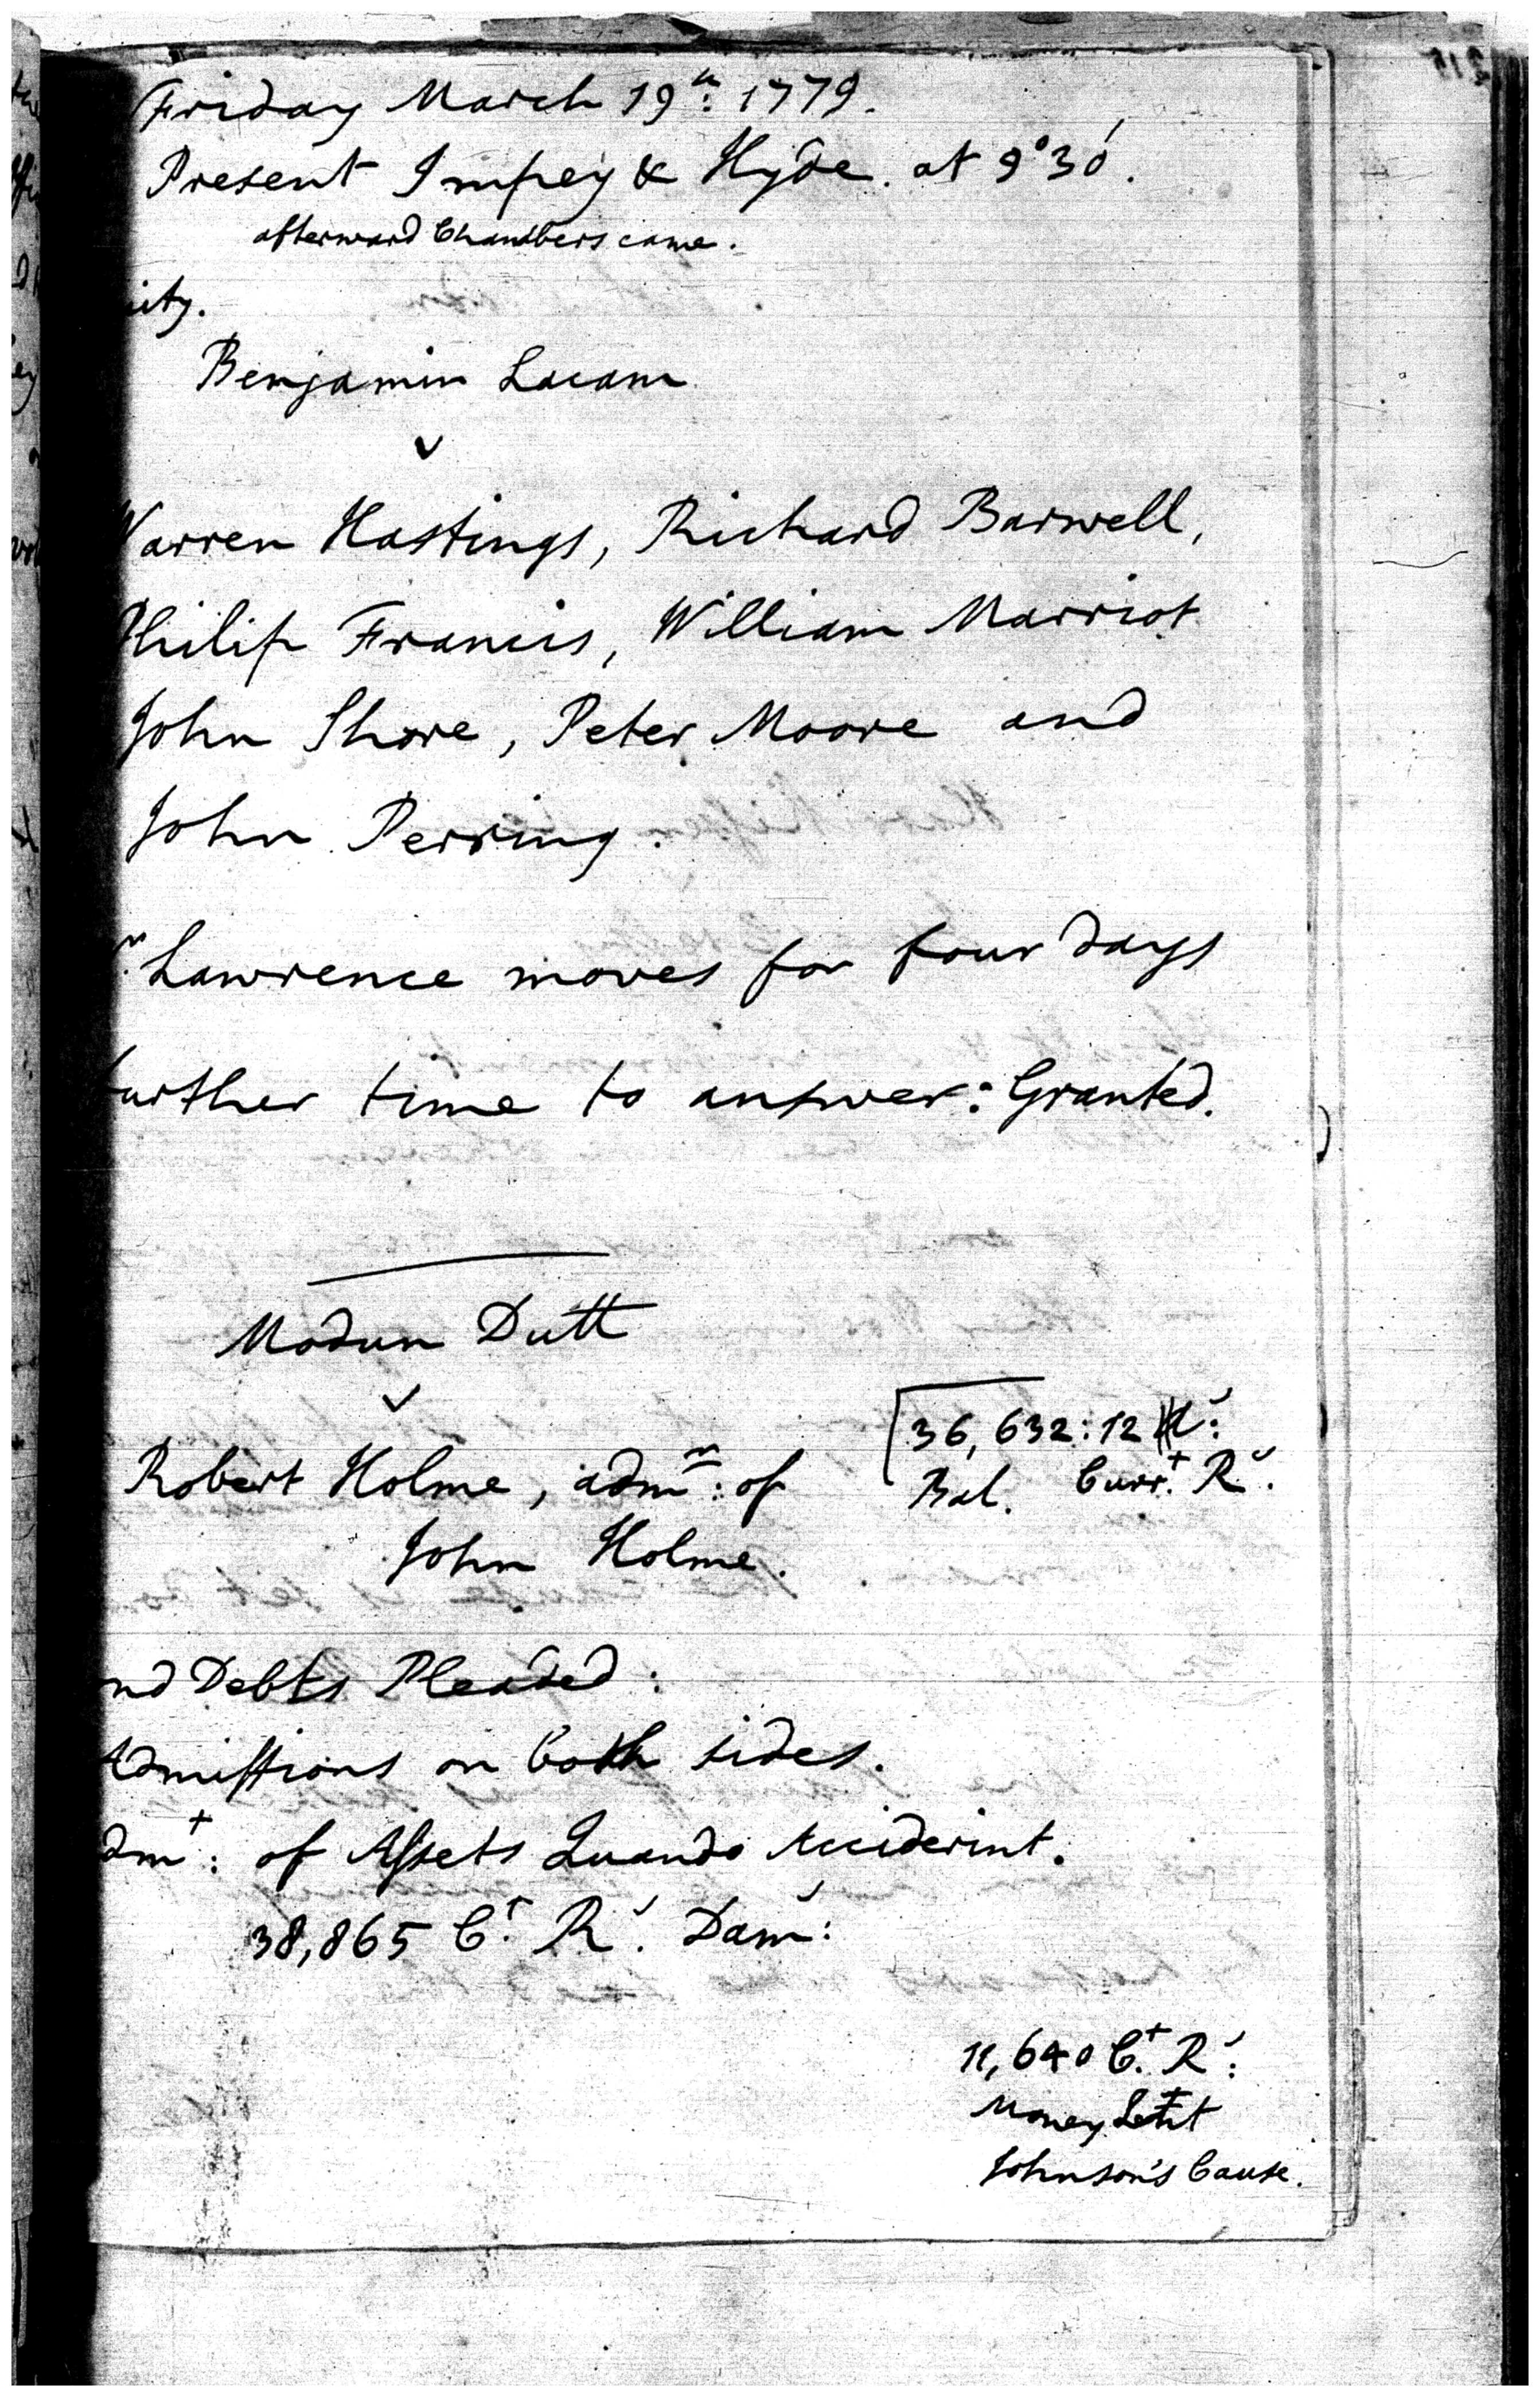 Friday March 19th: 1779.
Present Impey & Hyde. at 9°30'.
afterward Chambers came.
ity.
Benjamin Lacam
v
Warren Hastings, Richard Barwell,
Philip Francis, William Marriot
John Shore, Peter Moore and
John Perring.
r. Lawrence moves for four days
further time to answer: Granted.
Modun Dutt
v
Robert Holme, admr: of
John Holme.
36,632:12
Bal. Currt. Rs.
nd Debts Pleaded:
Admissions on both sides.
dmt: of Assets Quando Acciderint.
38,865 Ct. Rs. Dams:
11,640 Ct. Rs:
Money Lent
Johnson's Cause.